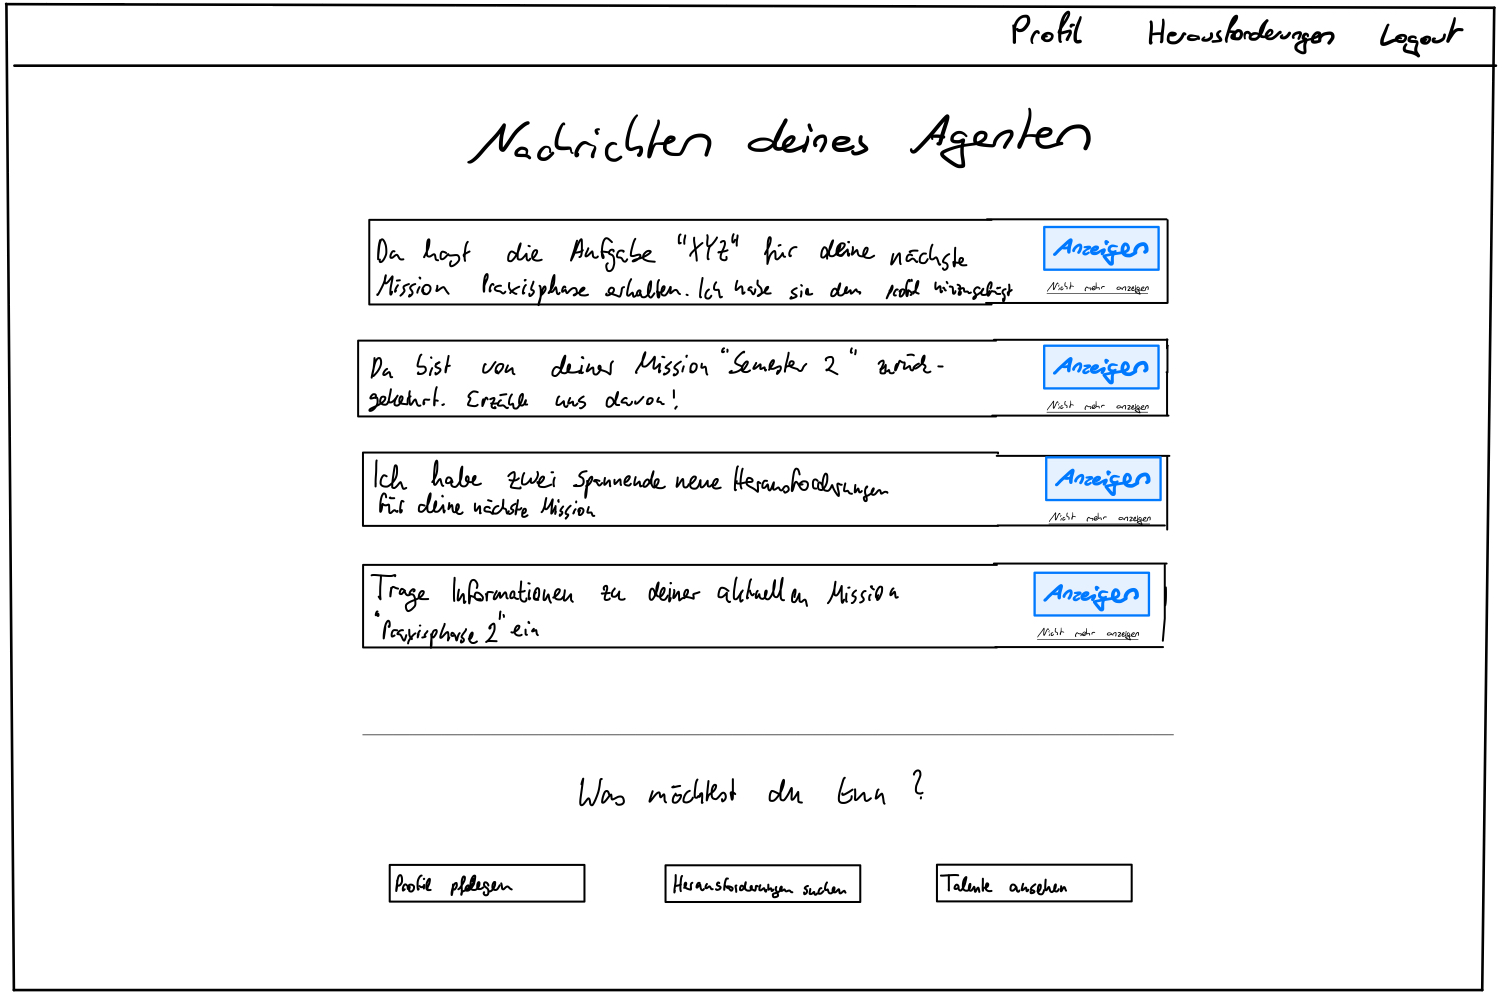 Profil Herausforderungen Logout
Nachrichten deines Agenten
Du hast die Aufgabe "XYZ" für deine nächste
Mission Praxisphase erhalten. Ich habe sie dem Profil hinzugefügt
Anzeigen
Nicht mehr anzeigen
Du bist von deiner Mission "Semester 2" zurück-
gekehrt. Erzähle uns davon!
Anzeigen
Nicht mehr anzeigen
Ich habe zwei spannende neue Herausforderungen
für deine nächste Mission
Anzeigen
Nicht mehr anzeigen
Trage Informationen zu deiner aktuellen Mission
"Praxisphase 2" ein
Anzeigen
Nicht mehr anzeigen
Was möchtest du tun?
Profil pflegen
Herausforderungen suchen
Talente ansehen